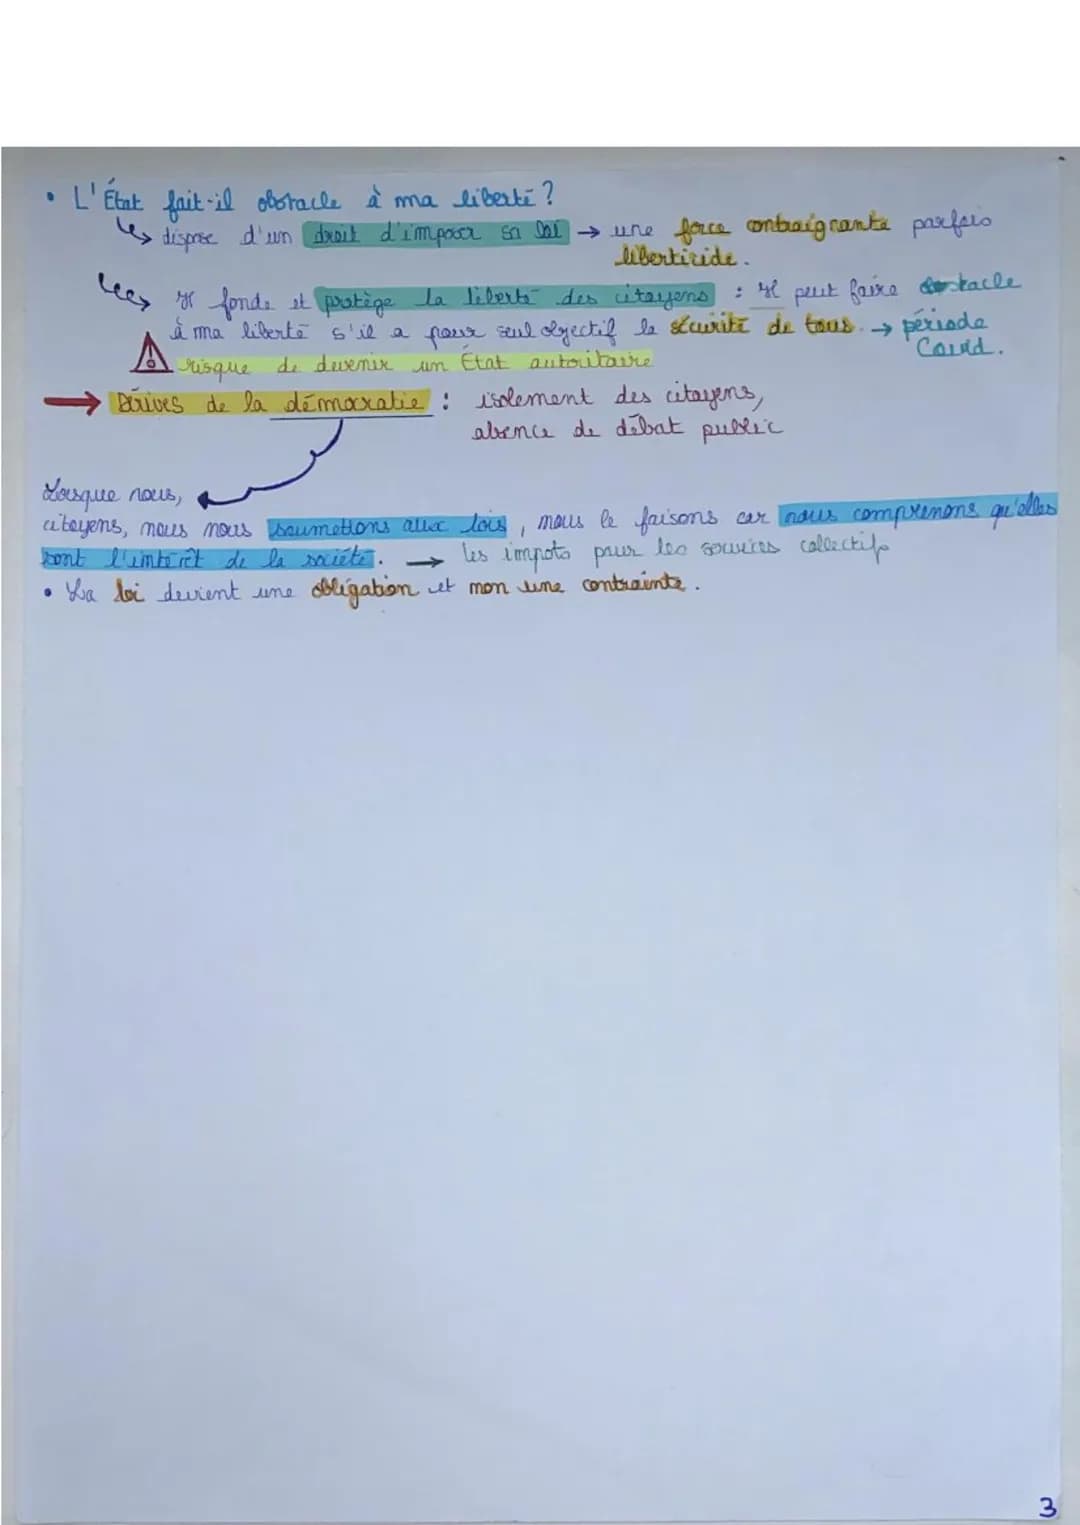 • L'État fait-il obstacle à ma liberté ?
↳ dispose d'un droit d'imposer sa loi → une force contraignante parfois
liberticide.
↳ Il fonde et protège la liberté des citoyens : Il peut faire obstacle
à ma liberté s'il a pour seul objectif la sécurité de tous. → période
Covid.
⚠ risque de devenir un État autoritaire
→ Dérives de la démocratie : isolement des citoyens,
absence de débat public
Lorsque nous,
citoyens, nous nous soumettons aux lois, nous le faisons car nous comprenons qu'elles
sont l'intérêt de la société. → les impots pour les services collectifs
• La loi devient une obligation et non une contrainte.
3